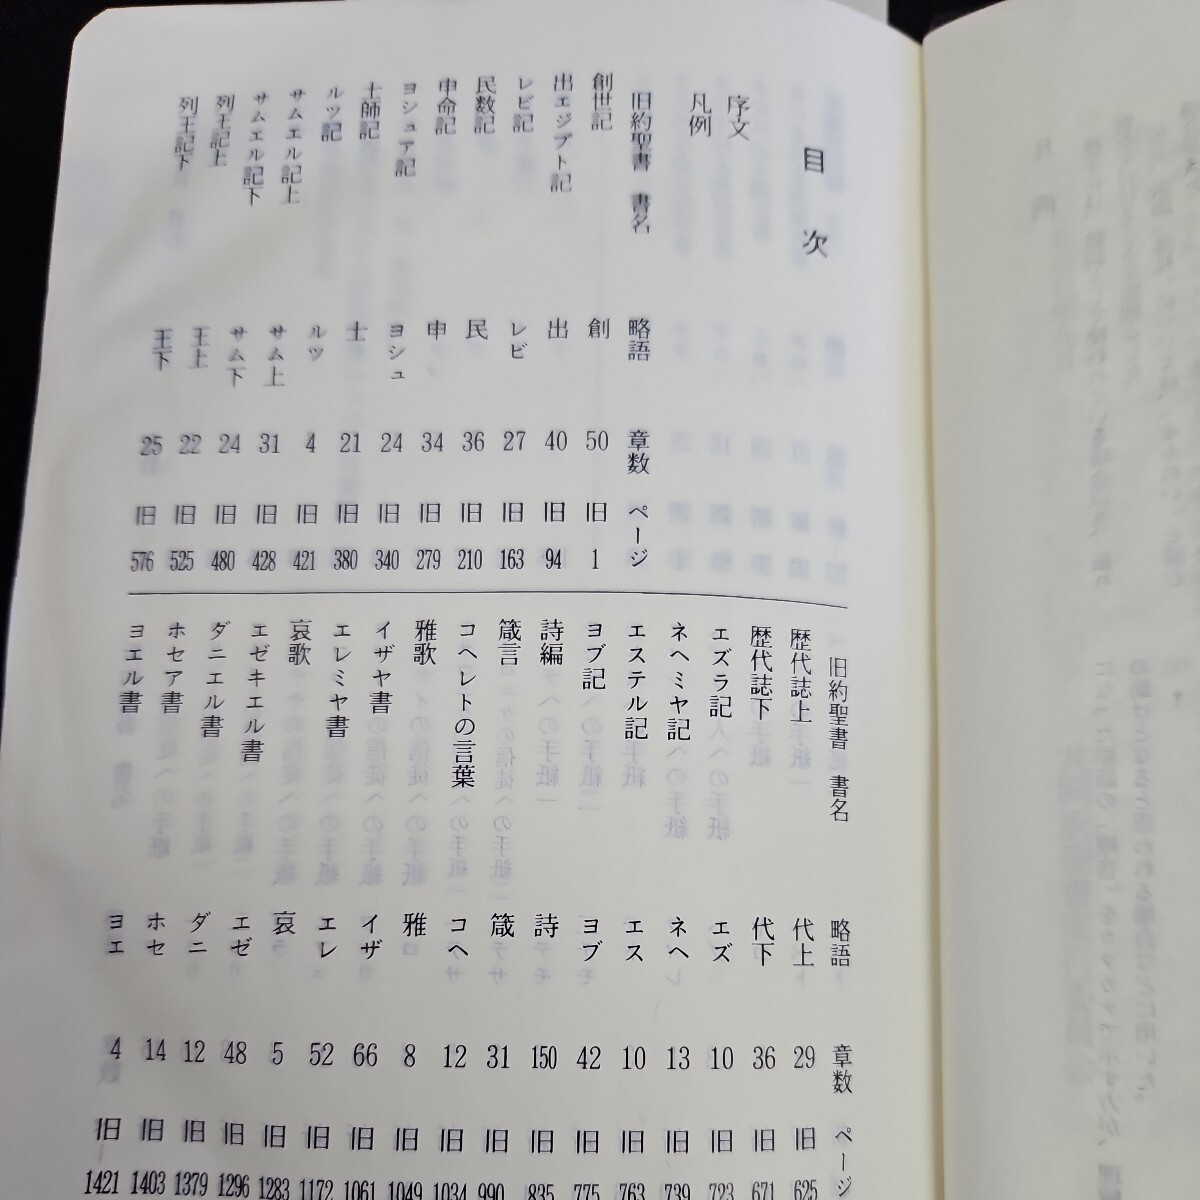 目次
序文
凡例
旧約聖書 書名 略語 章数 ページ
創世記 創 50 旧 1
出エジプト記 出 40 旧 94
レビ記 レビ 27 旧 163
民数記 民 36 旧 210
申命記 申 34 旧 279
ヨシュア記 ヨシュ 24 旧 340
士師記 士 21 旧 380
ルツ記 ルツ 4 旧 421
サムエル記上 サム上 31 旧 428
サムエル記下 サム下 24 旧 480
列王記上 王上 22 旧 525
列王記下 王下 25 旧 576
旧約聖書 書名 略語 章数 ページ
歴代誌上 代上 29 旧 625
歴代誌下 代下 36 旧 671
エズラ記 エズ 10 旧 723
ネヘミヤ記 ネヘ 13 旧 739
エステル記 エス 10 旧 763
ヨブ記 ヨブ 42 旧 775
詩編 詩 150 旧 835
箴言 箴 31 旧 990
コヘレトの言葉 コヘ 12 旧 1034
雅歌 雅 8 旧 1049
イザヤ書 イザ 66 旧 1061
エレミヤ書 エレ 52 旧 1172
哀歌 哀 5 旧 1283
エゼキエル書 エゼ 48 旧 1296
ダニエル書 ダニ 12 旧 1379
ホセア書 ホセ 14 旧 1403
ヨエル書 ヨエ 4 旧 1421